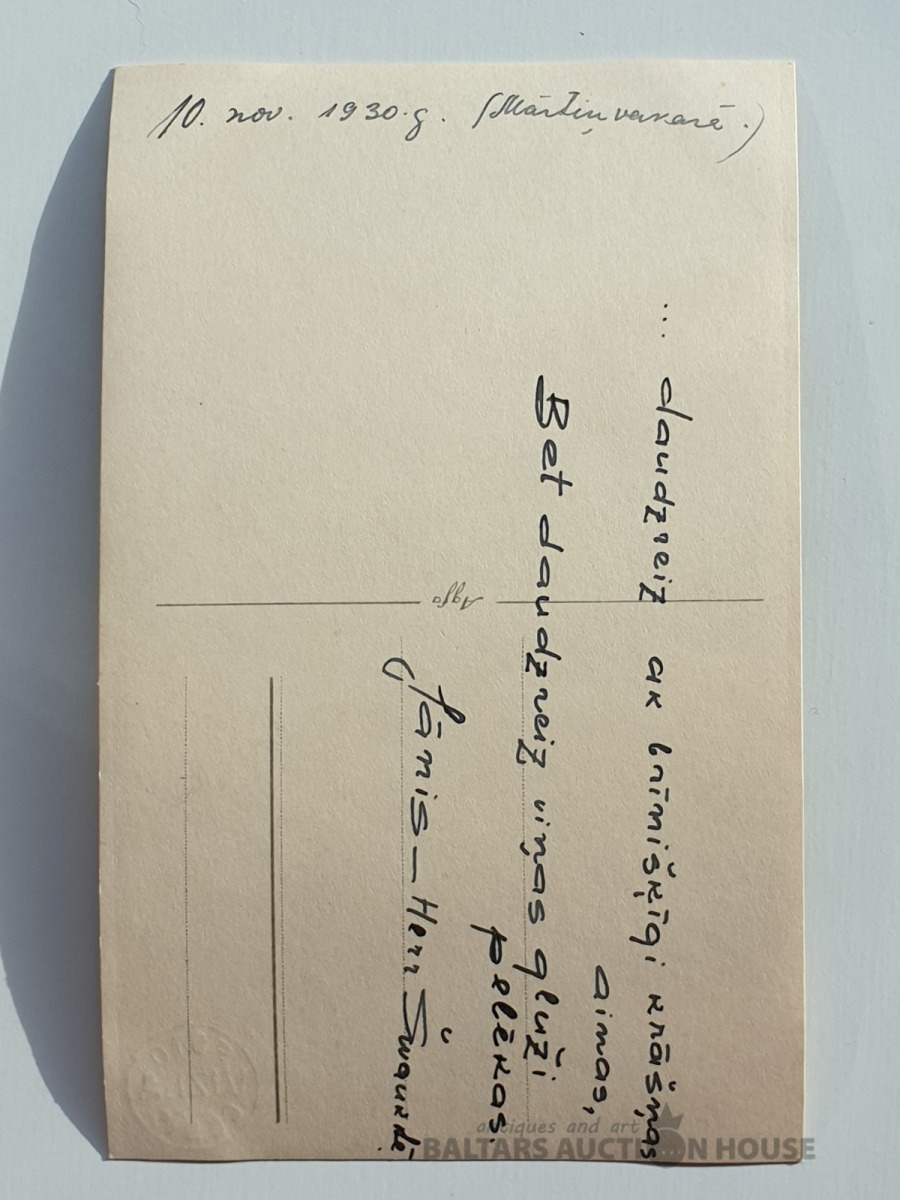 10. nov. 1930.g. (Mārtiņvakarā.)
... daudzreiz ak brīnišķīgi krāšņas
ainas,
Bet daudzreiz viņas gluži
pelēkas.
Jānis – Herr Švaukde.
Agfa
antiques and art
BALTARS AUCTION HOUSE